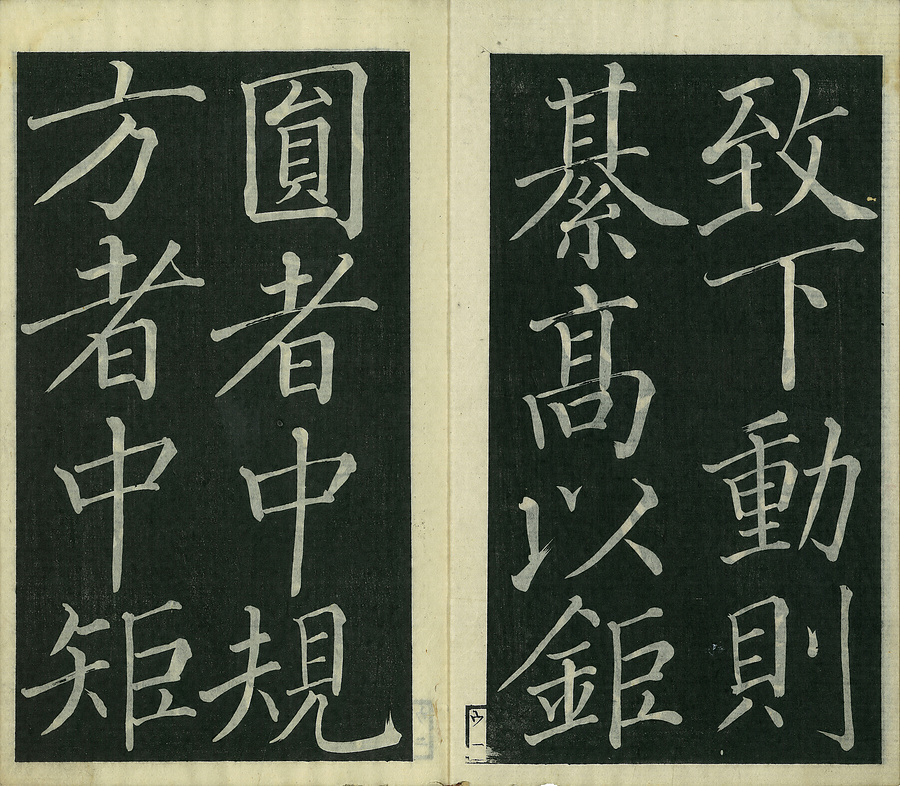 致下動則
綦高以鉅
圓者中規
方者中矩